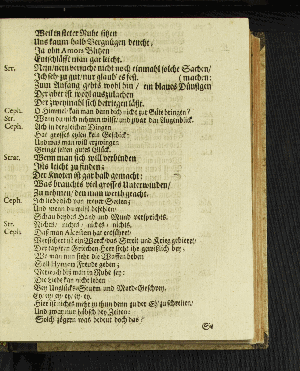 Weil in steter Ruhe sitzen
Uns kaum halb Vergnügen deucht,
Ja ohn Amors Blitzen
Entschläfft man gar leicht.
Str. Nein/ nein/ versucht nicht noch einmahl solche Sachen/
Ich seh zu gut/ nur glaub es fest. (machen:
Zum Anfang gehts wohl hin / ein blaues Dünstgen
Der aber ist wohl auszulachen
Der zweymahl sich betriegen läßt.
Ceph. O Himmel! kan man denn dich nicht zur Güte bringen?
Str. Wenn du mich nehmen wilst/ und zwar den Augenblick.
Ceph. Ich in dergleichen Dingen
Hat großes eylen kein Geschick:
Und was man will erzwingen:
Bringt selten gutes Glück.
Strac. Wenn man sich will verbinden
Ists leicht zu finden;
Der Knoten ist gar bald gemacht:
Was brauchts viel grosses Unterwinden/
Zu nehmen/ den man werth geacht.
Ceph. Ich liebe dich von reiner Seelen;
Und wenn du wilst befehlen/
Schau beydes Hand und Mund verspricht.
Str. Nichts/ nichts/ nichts/ nichts.
Ceph. Daß man Alcesten hat entführet/
Verschiert ein Werck das Streit und Krieg gebieret/
Der tapfern Griechen Heer steht ihr gewißlich bey:
Wo man nun sieht die Waffen beben
Soll Hymen Freude geben;
Vertrieb bis man in Ruhe sey:
Die Liebe kan nicht leben
Bey Unglücks-Sturm und Mord-Geschrey.
Ey/ ey/ ey/ ey/ ey.
Hier ist nichts mehr zu thun denn zu der Eh' zu schreiten/
Und zwar nur hübsch bey Zeiten:
Solch zögern was bedeut doch das?
Sie